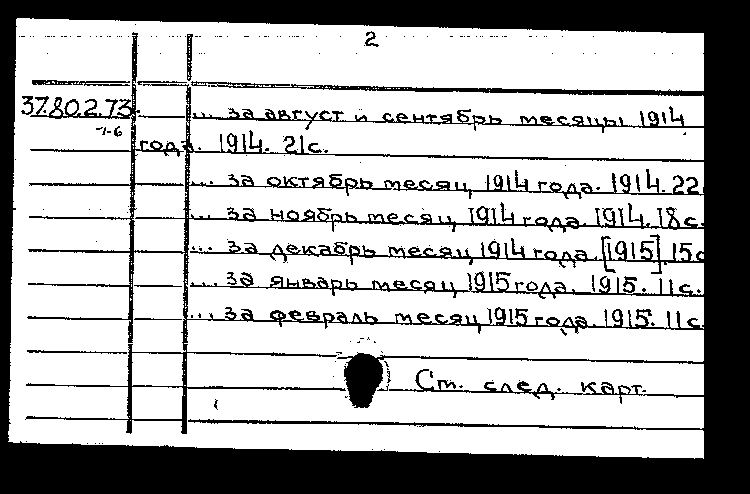 2
37.80.2.73. ... за август и сентябрь месяцы 1914
-1-6
года. 1914. 21с.
... за октябрь месяц 1914 года. 1914. 22
... за ноябрь месяц 1914 года. 1914. 18 с.
... за декабрь месяц 1914 года. [1915]. 15с
... за январь месяц 1915 года. 1915. 11 с.
... за февраль месяц 1915 года. 1915. 11 с.
Ст. след. карт.